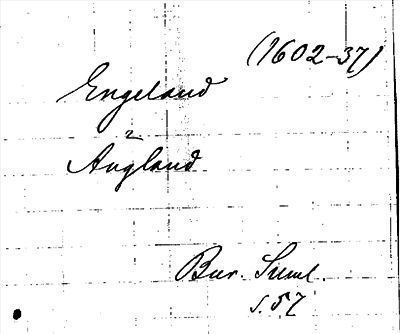 (1602-37)
Engeland
2
Angland
Bur. Suml.
s. 57